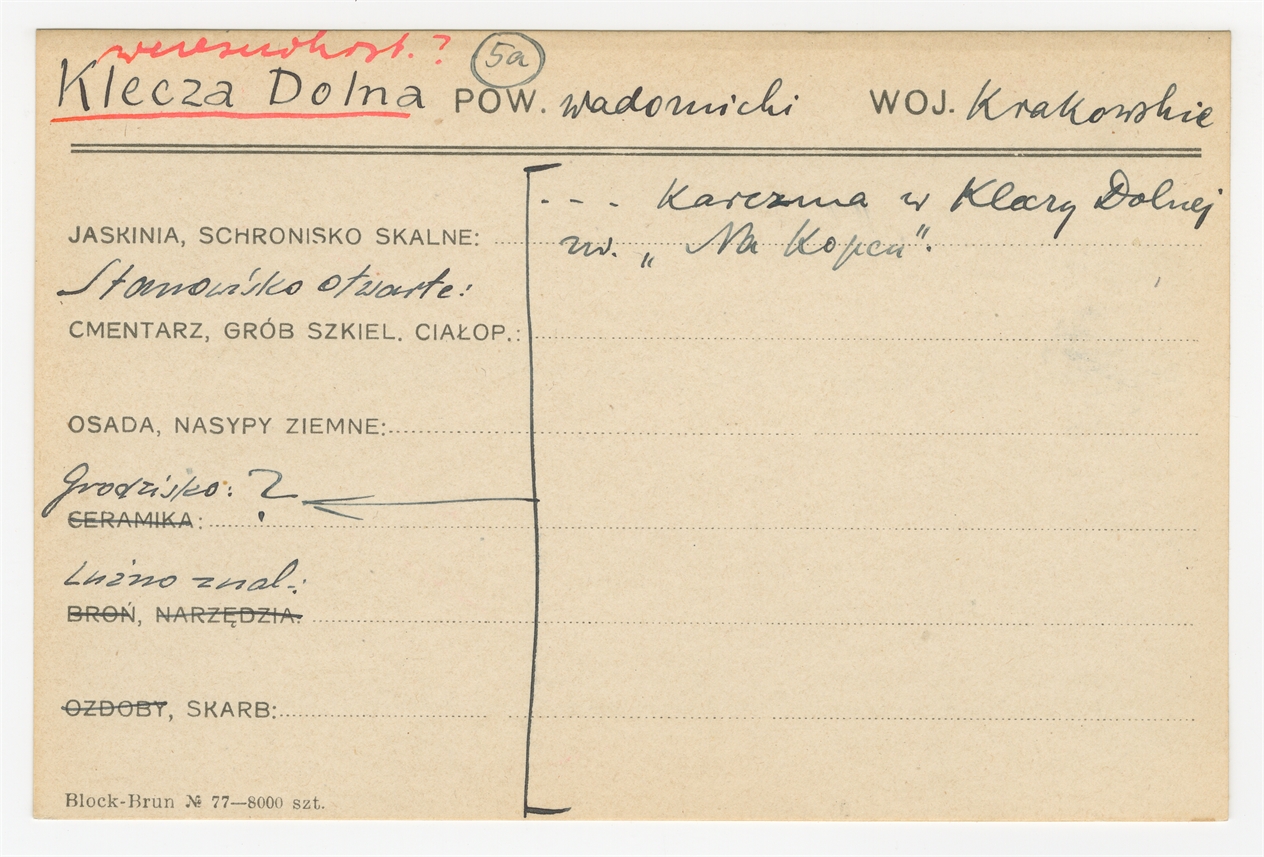 wczesnohist.? 5a
Klecza Dolna POW. wadowicki WOJ. Krakowskie
- - - Karczma w Kleczy Dolnej
JASKINIA, SCHRONISKO SKALNE: zw. „Na Kopcu".
Stanowisko otwarte:
CMENTARZ, GRÓB SZKIEL. CIAŁOP.:
OSADA, NASYPY ZIEMNE:
Grodzisko: ?
CERAMIKA:
Luźno znal.:
BROŃ, NARZĘDZIA:
OZDOBY, SKARB:
Block-Brun № 77—8000 szt.